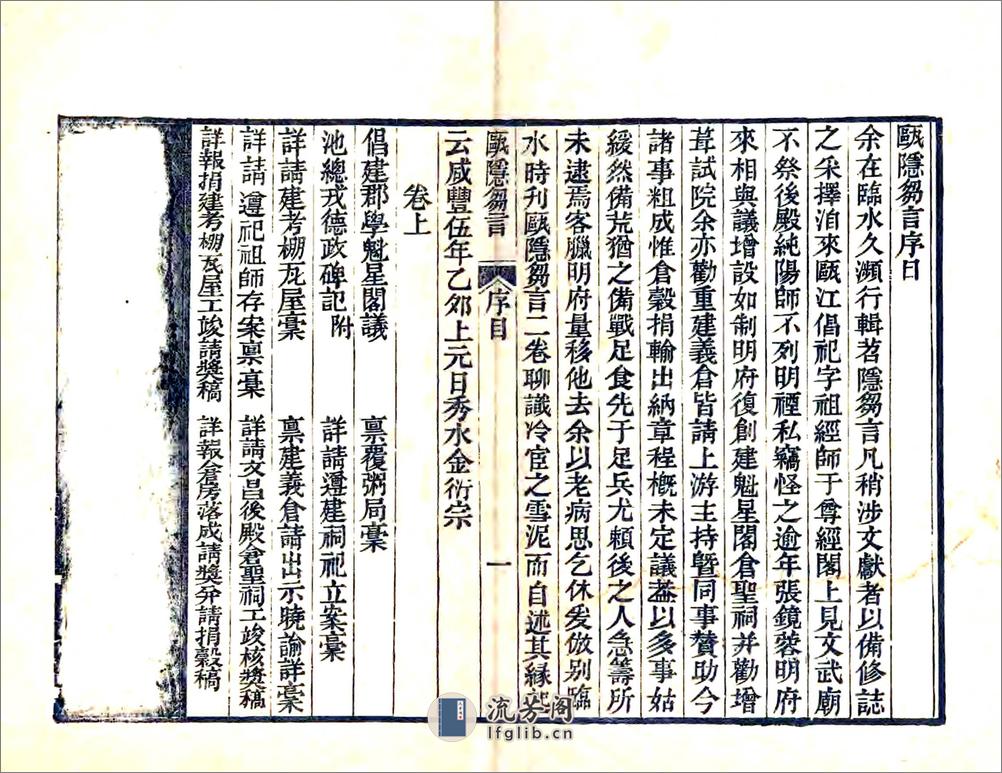 甌隱芻言序目
余在臨水久瀕行輯茗隱芻言凡稍涉文獻者以備修誌
之采擇洎來甌江倡祀字祖經師于尊經閣上見文武廟
不祭後殿純陽師不列明禋私竊怪之逾年張鏡蓉明府
來相與議增設如制明府復創建魁星閣倉聖祠并勸增
葺試院余亦勸重建義倉皆請上游主持暨同事贊助今
諸事粗成惟倉穀捐輸出納章程槪未定議葢以多事姑
緩然備荒猶之備戰足食先于足兵尤賴後之人急籌所
未逮焉客臘明府量移他去余以老病思乞休爰倣别臨
水時刋甌隱芻言二卷聊識冷宦之雪泥而自述其緣起
甌隱芻言 序目 一
云咸豐伍年乙夘上元日秀水金衍宗
卷上
倡建郡學魁星閣議 禀覆粥局稾
池總戎德政碑記附 詳請遵建祠祀立案稾
詳請建考棚瓦屋稾 禀建義倉請出示曉諭詳稾
詳請遵祀祖師存案禀稾 詳請文昌後殿倉聖祠工竣核獎稿
詳報捐建考棚瓦屋工竣請獎稿 詳報倉房落成請獎并請捐穀稿
流芳阁
lfglib.cn